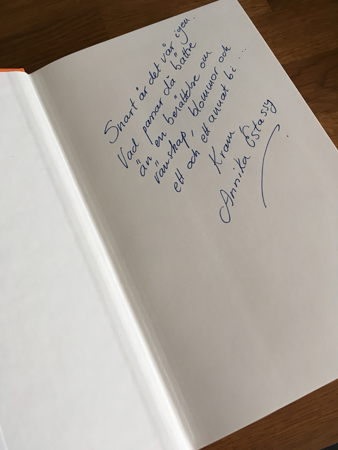 Snart är det vår igen.
Vad passar då bättre
än en berättelse om
vänskap, blommor och
ett och ett annat bi...
Kram
Annika Estassy